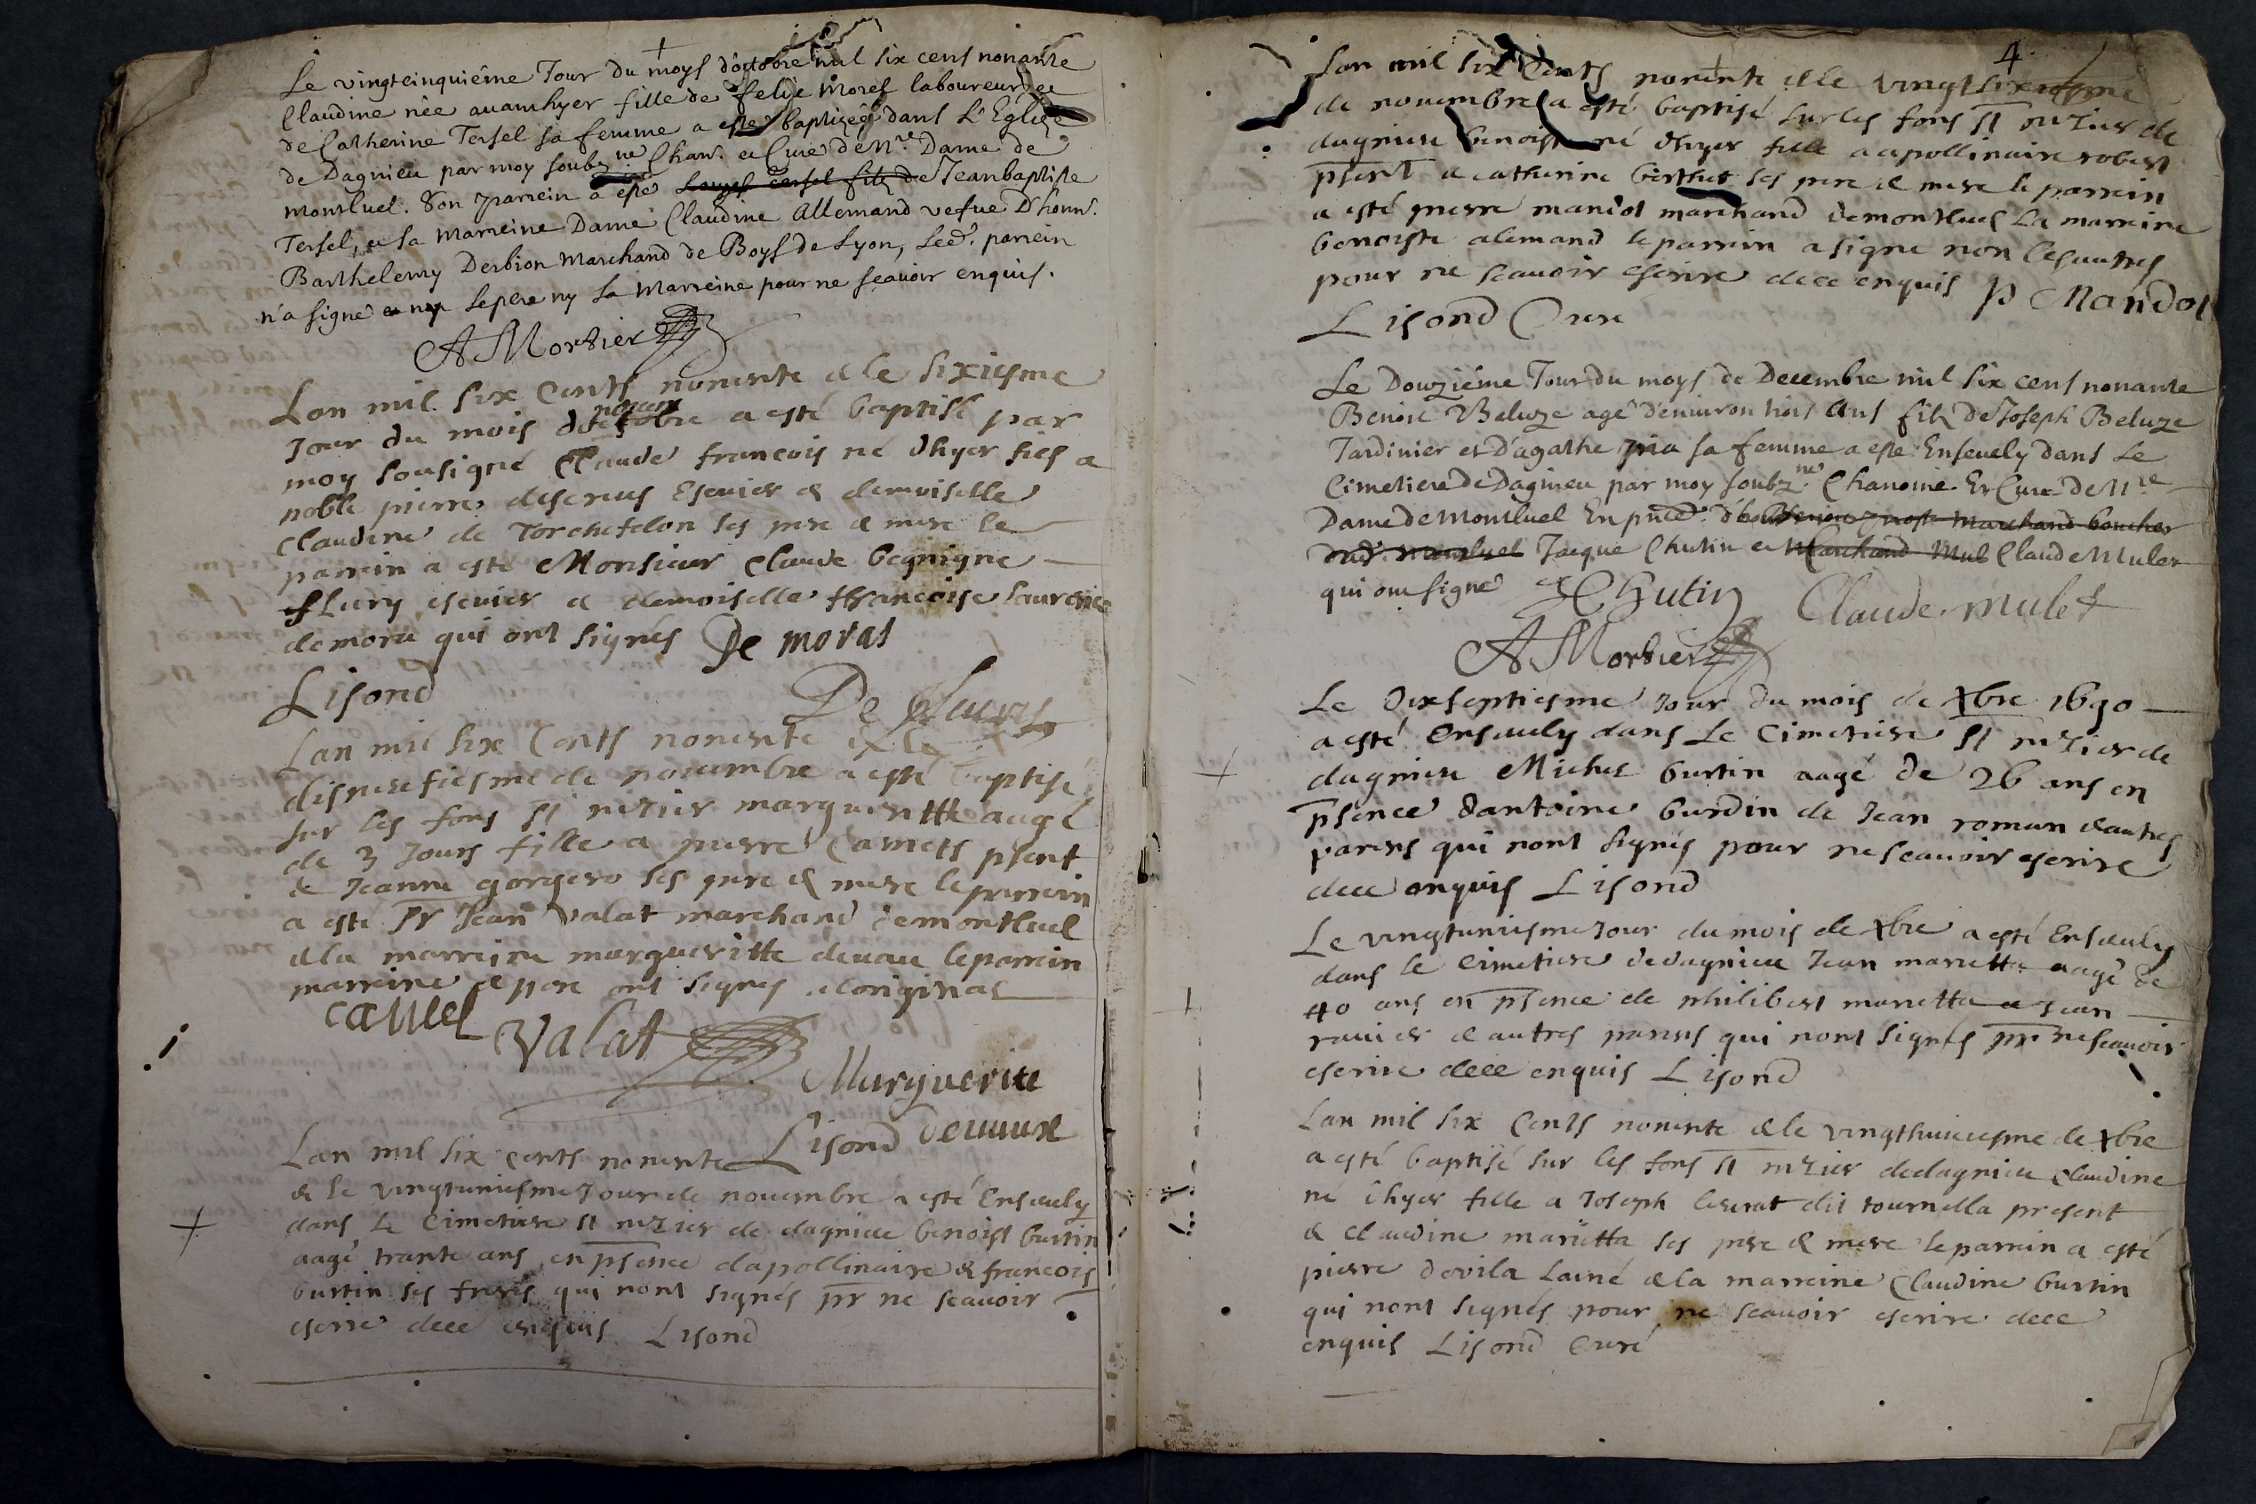 Le vingtcinquiéme Jour du moys d'octobre mil six cens nonante
Claudine née auanthyer fille de felix Morel laboureur et
de Catherine Tersel sa femme a esté baptizée dans L'Eglize
de Dagnieu par moy soubz.né Chan.e et Curé de N.re Dame de
Montluel. Son parrein a esté Louys Tersel filz de Jean baptiste
Tersel, et sa Marreine Dame Claudine Allemand vefue D'honn.
Barthelemy Derbion Marchand de Boys de Lyon, Led. parrein
n'a signé ny le pere ny la Marreine pour ne seauoir enquis.
A Morbier
Lan mil six cents nonente & le sixiesme
Jour du mois de nouembre a esté baptisé par
moy sousigné Claude francois né dhyer fils a
noble pierre escuier & demoiselle
Claudine de Torchefelon ses pere & mere le
parrein a esté Monsieur Claude begnigne
flury escuier & demoiselle francoise laurence
demora qui ont signés De moras
Lisond
De fluury
Lan mil six cents nonente & le
de nouembre a esté baptisé
sur les fons st nizier margueritte augé
de 3 Jours fille a pierre Camets psent
& Jeanne gorgero ses pere & mere le parrein
a esté sr Jean valat marchand demontluel
& la marreine margueritte deuau le parrein
marreine & pere ont signés a loriginal
camet
valat
Marguerite
deuaux
Lisond
Lan mil six cents nonente
& le vingtuniesme Jour de nouembre a esté Enseuely
dans le cimetiere st nizier de dagnieu benoist burtin
aagé trante ans en psence dapollinaire & francois
burtin ses freres qui nont signés pr ne scauoir
escrire dece enquis Lisond
4
Lan mil six cents nonente & le vingtsixiesme
de nouembre a esté baptisé sur les fons st nizier de
dagnieu benoist né dhyer fille a apollinaire robert
psent & catherine berthet ses pere & mere le parrein
a esté pierre mandot marchand demontluel La marreine
benoiste alemand le parrein a signe non les autres
pour ne scauoir escrire dece enquis P Mandot
Lisond Cure
Le Douziéme Jour du moys de Decembre mil six cens nonante
Benoit Beluze agé d'enuiron trois ans filz de Joseph Beluze
Jardinier et d'agathe pria sa femme a esté Enseuely dans Le
Cimetiere de Dagnieu par moy soubz.né Chanoine Et Curé de N.re
Dame de Montluel En pnce. d'h Marchand boucher
dud. Montluel Jacque Chutin et Marchand Mul Claude Mulet
qui ont signé Chutin Claude mulet
A Morbier
Le dixseptiesme Jour du mois de Xbre 1690
a esté Enseuely dans Le Cimetiere st nizier de
dagnieu Michel burtin aagé de 26 ans en
psence dantoine burdin de Jean roman & autres
parens qui nont signés pour ne scauoir escrire
dece enquis Lisond
Le vingtuniesme Jour du mois de Xbre a esté Enseuely
dans le cimetiere dedagnieu Jean marietta aagé de
40 ans en psence de philibert marietta & Jean
rauier & autres parens qui nont signés pr ne scauoir
escrire dece enquis Lisond
Lan mil six cents nonente & le vingthuictiesme de Xbre
a esté baptisé sur les fons st nizier dedagnieu Claudine
né dhyer fille a Joseph leurat dit tournella present
& Claudine marietta ses pere & mere le parrein a esté
pierre dovila Lainé & la marreine Claudine burtin
qui nont signés pour ne scauoir escrire dece
enquis Lisond Curé